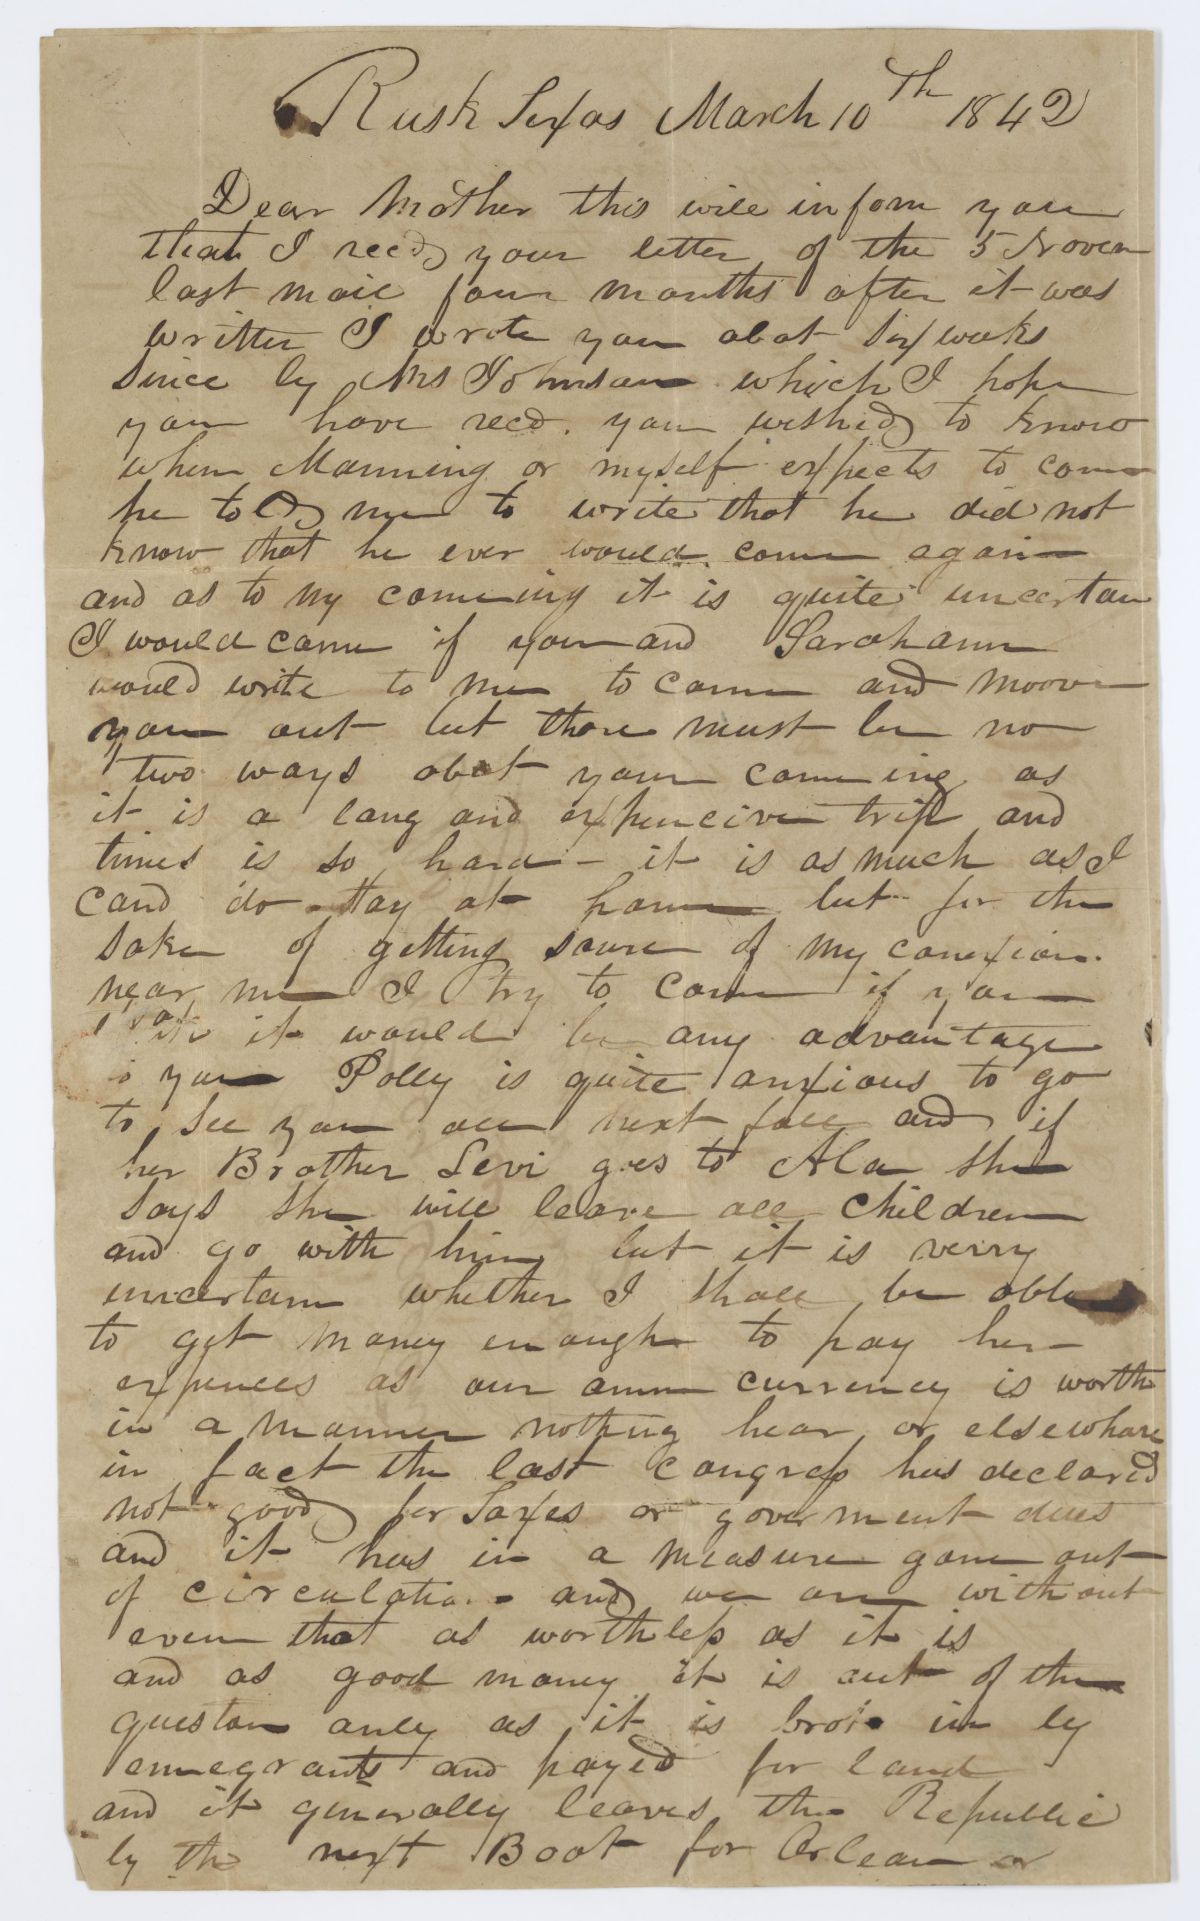 Rusk Texas March 10th 1842
Dear Mother this will inform you
that I recd your letter of the 5 Novem
last mail four months after it was
written I wrote you abot six weaks
since by Mrs Johnson which I hope
you have recd. you wished to know
when Manning or myself expects to come
he told me to write that he did not
know that he ever would come again
and as to my comeing it is quite uncertan
I would come if you and Sarahann
would write to me to come and moove
you out but there must be no
two ways abot your comeing as
it is a long and expencive trip and
times is so hard - it is as much as I
cand do stay at home but for the
sake of getting some of my conexion
near me I try to come if you
it would be any advantage
you Polly is quite anxious to go
to see you all next fall and if
her Brother Levi goes to Ala she
says she will leave all children
and go with him but it is verry
uncertain whether I shall be able
to get money enough to pay her
expences as our own currency is worth
in a manner nothing hear or elsewhare
in fact the last congress has declared
not good for Taxes or goverment dues
and it has in a measure gone out
of circulation and we are without
even that as worthless as it is
and as good money it is out of the
queston only as it is brot in by
emmegrants and payed for land
and it generally leaves the Republic
by the next Boat for Orleans or